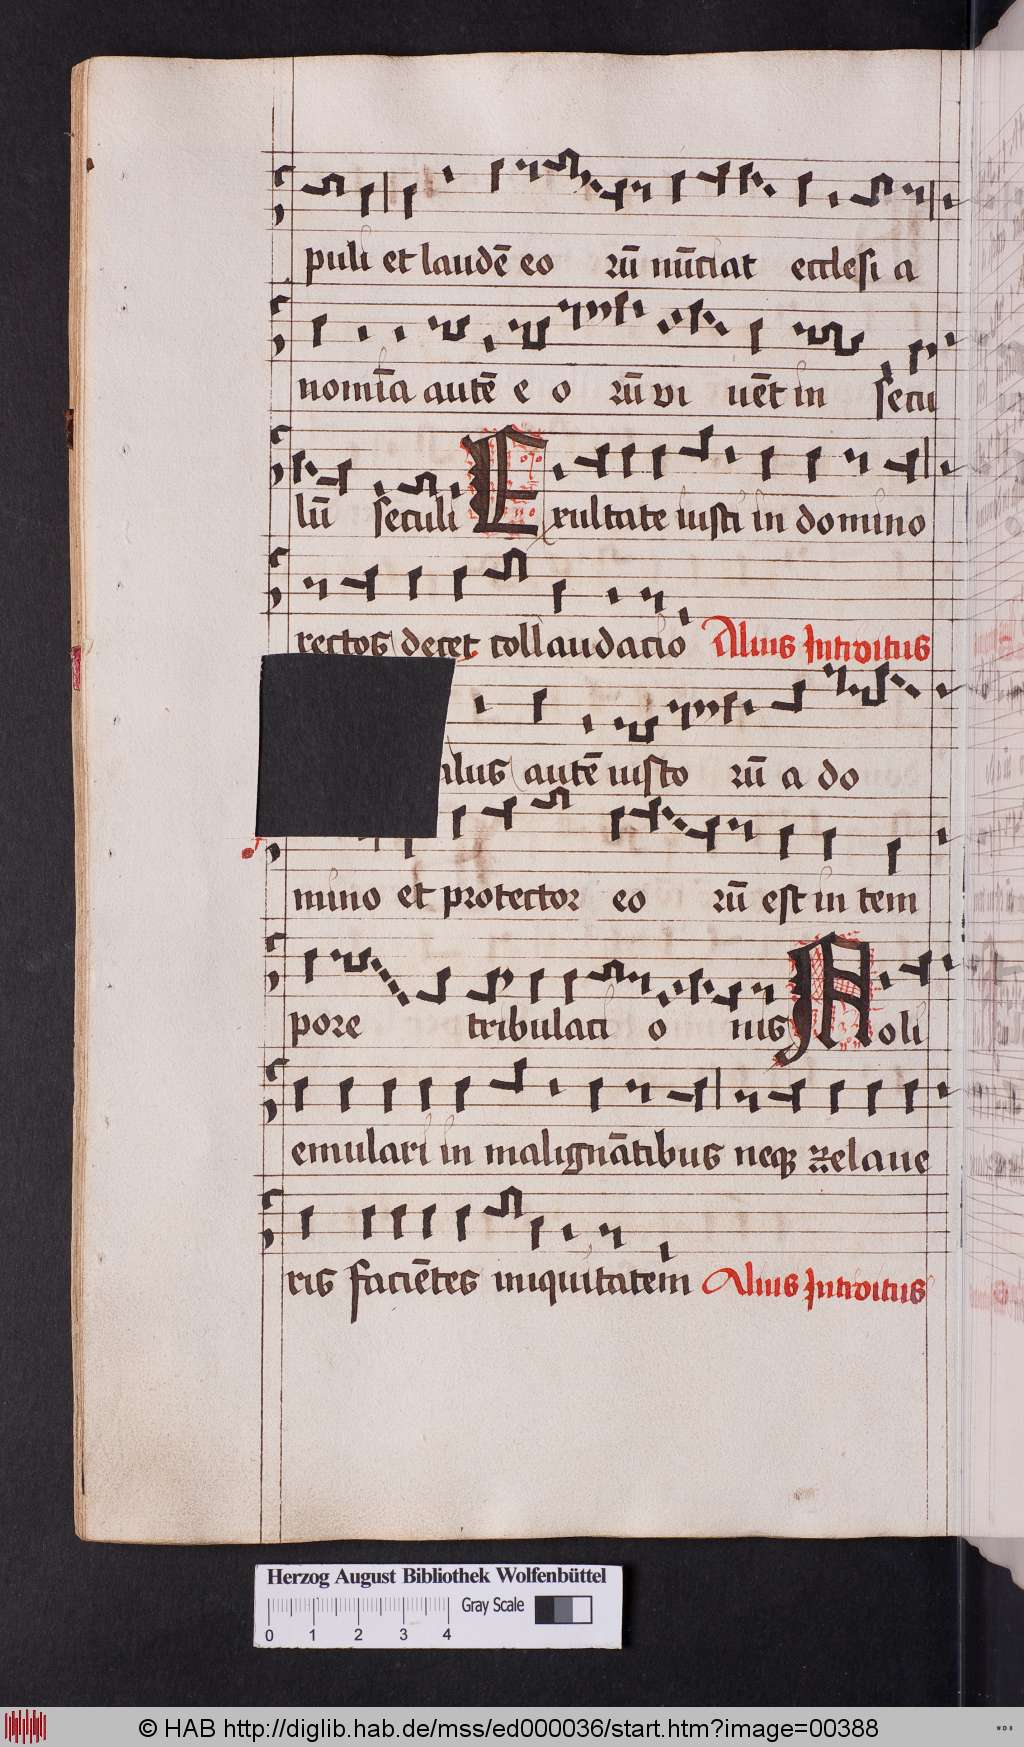 puli et laudē eo rū nūciat ecclesi a
nomīa autē e o rū vi uēt in secu
lū seculi Exultate iusti in domino
rectos decet collaudacio Alius Introitus
alus autē iusto rū a do
mino et protector eo rū est in tem
pore tribulati o nis Noli
emulari in malignātibus neqꝫ zelaue
ris faciētes iniquitatem Alius Introitus
Herzog August Bibliothek Wolfenbüttel
Gray Scale
0 1 2 3 4
© HAB http://diglib.hab.de/mss/ed000036/start.htm?image=00388